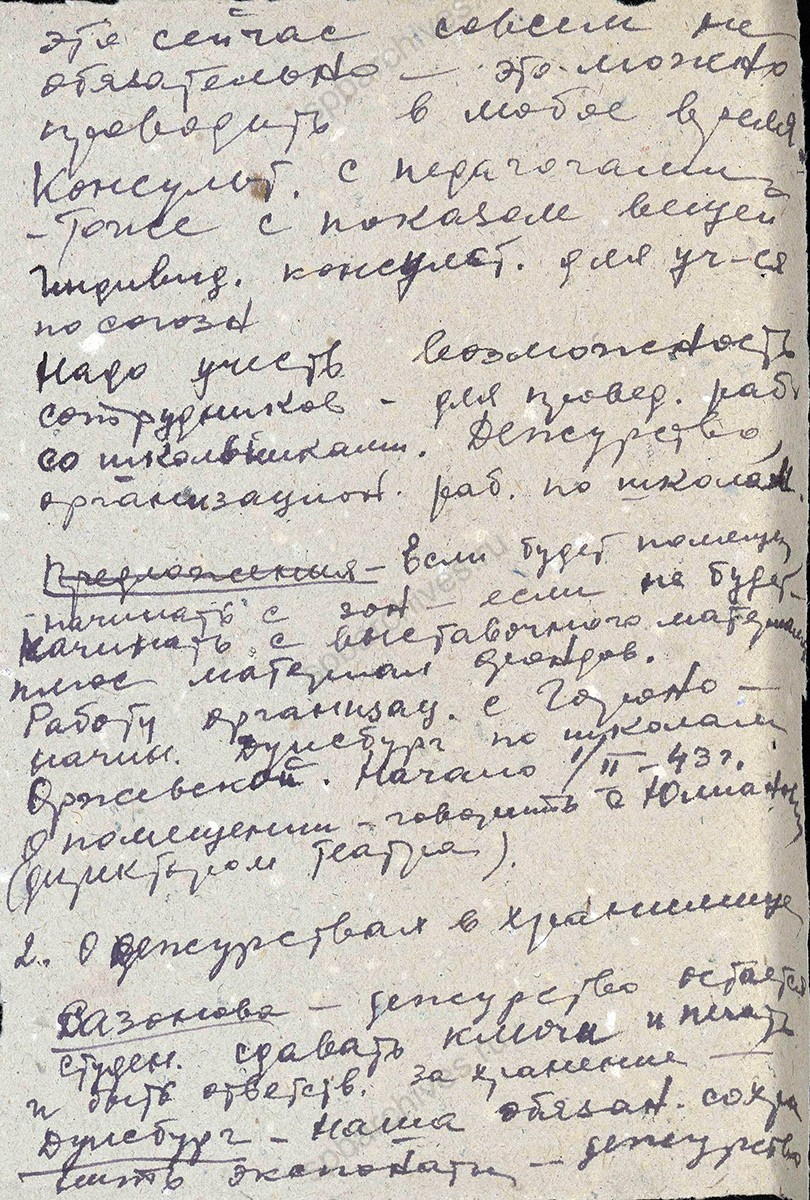 это сейчас совсем не
обязательно — это можно
проводить в любое время.
Консульт. с педагогами
— Тоже с показом вещей
Индивид. консульт. для уч-ся
по
Надо учесть возможность
сотрудников — для провед. раб.
со школьниками. Дежурство,
организацион. раб. по школам
Предложения — Если будет помещен.
— начинать с зон — если не будет —
начинать с выставочного материала
плюс материал фондов.
Работу организац. с Гороно —
начин. Дуисбург по школам
Оржевской. Начало 1/II — 43 г.
О помещении — говорить с
(директором театра).
2. О дежурствах в хранилище
Сазонова — дежурство остается
студен. сдавать ключи и печать
и быть ответств. за хранение —
Дуисбург — наша обязан. сохра
нить экспонаты — дежурство
spbarchives.ru